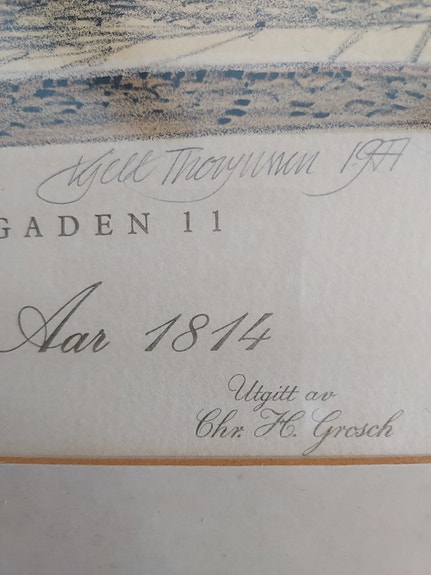 Kjell Thorjussen 1977
GADEN 11
Aar 1814
Utgitt av
Chr. H. Grosch